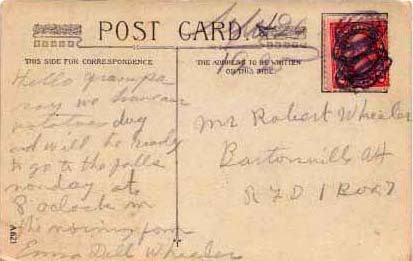 POST CARD
THIS SIDE FOR CORRESPONDENCE
THE ADDRESS TO BE WRITTEN
ON THIS SIDE
Hello grampa
say we have our
potatoes dug
and will be ready
to go to the falls
monday at
8 oclock in
the morning from
Emma Dell Wheeler
Mr Robert Wheeler
Bartonsville
R F D 1 Box 7
A621